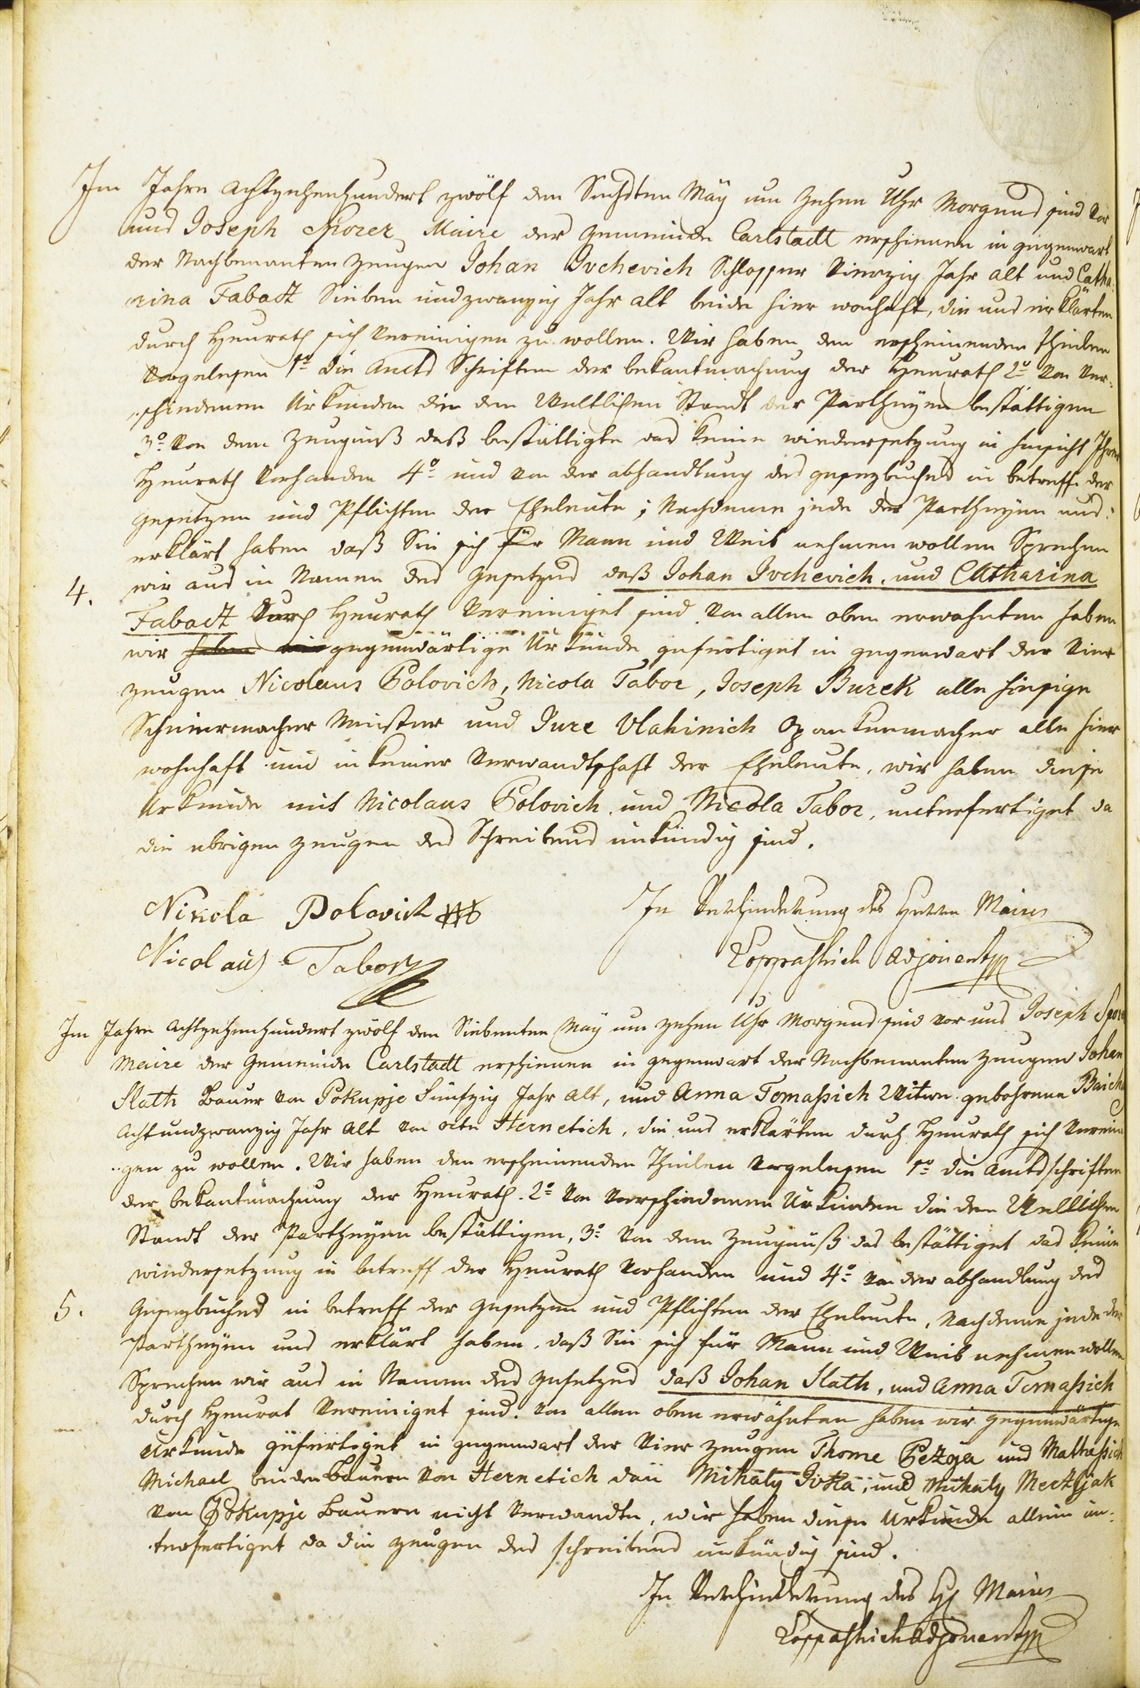 Im Jahre Achtzehenhundert zwölf den Sechsten May um zehen Uhr Morgens sind vor
uns Joseph Sporer, Maire der Gemeinde Carlstadt erschienen in gegenwart
der Nachbenanten Zeugen Johan Ivchevich Schlosser Vierzig Jahr alt und Catha-
rina Fabact Sieben und zwanzig Jahr alt beide hier wonhaft, die uns erklärten
durch Heurath sich vereinigen zu wollen. Wir haben den erscheinenden Theilen
Vorgelesen 1º die Amts Schriften der bekantmachung der Heurath 2º von Ver-
schiedenen Urkunden die den Weltlichen Standt der Partheyen bestättigen
3º von dem Zeugniß daß bestättigte das keine wiedersetzung in hinsicht Ihrer
Heurath Vorhanden 4º und von der abhandlung des gesezbuches in betreff der
gesetzen und Pflichten der Eheleute; Nachdeme jede der Partheyen uns
erklärt haben daß Sie sich für Mann und Weib nehmen wollen Sprechen
4. wir aus in Namen des Gesetzes daß Johan Ivchevich, und Catharina
Fabact durch Heurath Vereiniget sind. Von allen oben erwähnten haben
wir gegenwärtige Urkunde gefertiget in gegenwart der Vier
zeugen Nicolaus Polovich, Nicola Tabor, Joseph Burek alle hiesige
meister und Jure Vlahinich Opankenmacher alle hier
wohnhaft und in keiner Verwandtschaft der Eheleute, wir haben diese
Urkunde mit Nicolaus Polovich und Nicola Tabor, unterfertiget da
die ubrigen zeugen des Schreibens unkündig sind.
Nikola Polovich
In Verhinderung des Herrn Maires
Nicolaus Tabor
Adjoint
Im Jahre Achtzehenhundert zwölf den Siebenten May um zehen Uhr Morgens sind vor uns Joseph
Maire der Gemeinde Carlstadt erschienen in gegenwart der Nachbenanten Zeugen Johan
Slath Bauer von Pokupje Fünfzig Jahr Alt, und Anna Tomassich Witwe gebohrene
Acht und zwanzig Jahr Alt von orte Hernetich, die uns erklärten durch Heurath sich Vereini-
gen zu wollen. Wir haben den erscheinenden Theilen Vorgelesen 1º die Amtsschriften
der bekantmachung der Heurath. 2º von Verschiedenen Urkunden die den Weltlichen
Standt der Partheyen bestättigen, 3º von dem Zeugnuß das bestättiget das keine
wiedersetzung in betreff der Heurath Vorhanden und 4º von der abhandlung des
5. Gesezbuches in betreff der gesetzen und Pflichten der Eheleute, Nachdeme jede der
Partheyen uns erklärt haben, daß Sie sich für Mann und Weib nehmen wollen
Sprechen wir aus in Namen des gesetzes daß Johan Slath, und Anna Tomassich
durch Heurat Vereiniget sind. Von allen oben erwähnten haben wir gegenwärtige
Urkunde gefertiget in gegenwart der Vier zeugen Thome Pezga und Mathassich
Michael beide Bauern von Hernetich dan Mihaly Ivka, und Mihaly
von Pokupje Bauern nicht Verwandte, wir haben diese Urkunde allein un-
terfertiget da die zeugen des schreibens unkündig sind.
In Verhinderung des H Maires
Adjoint